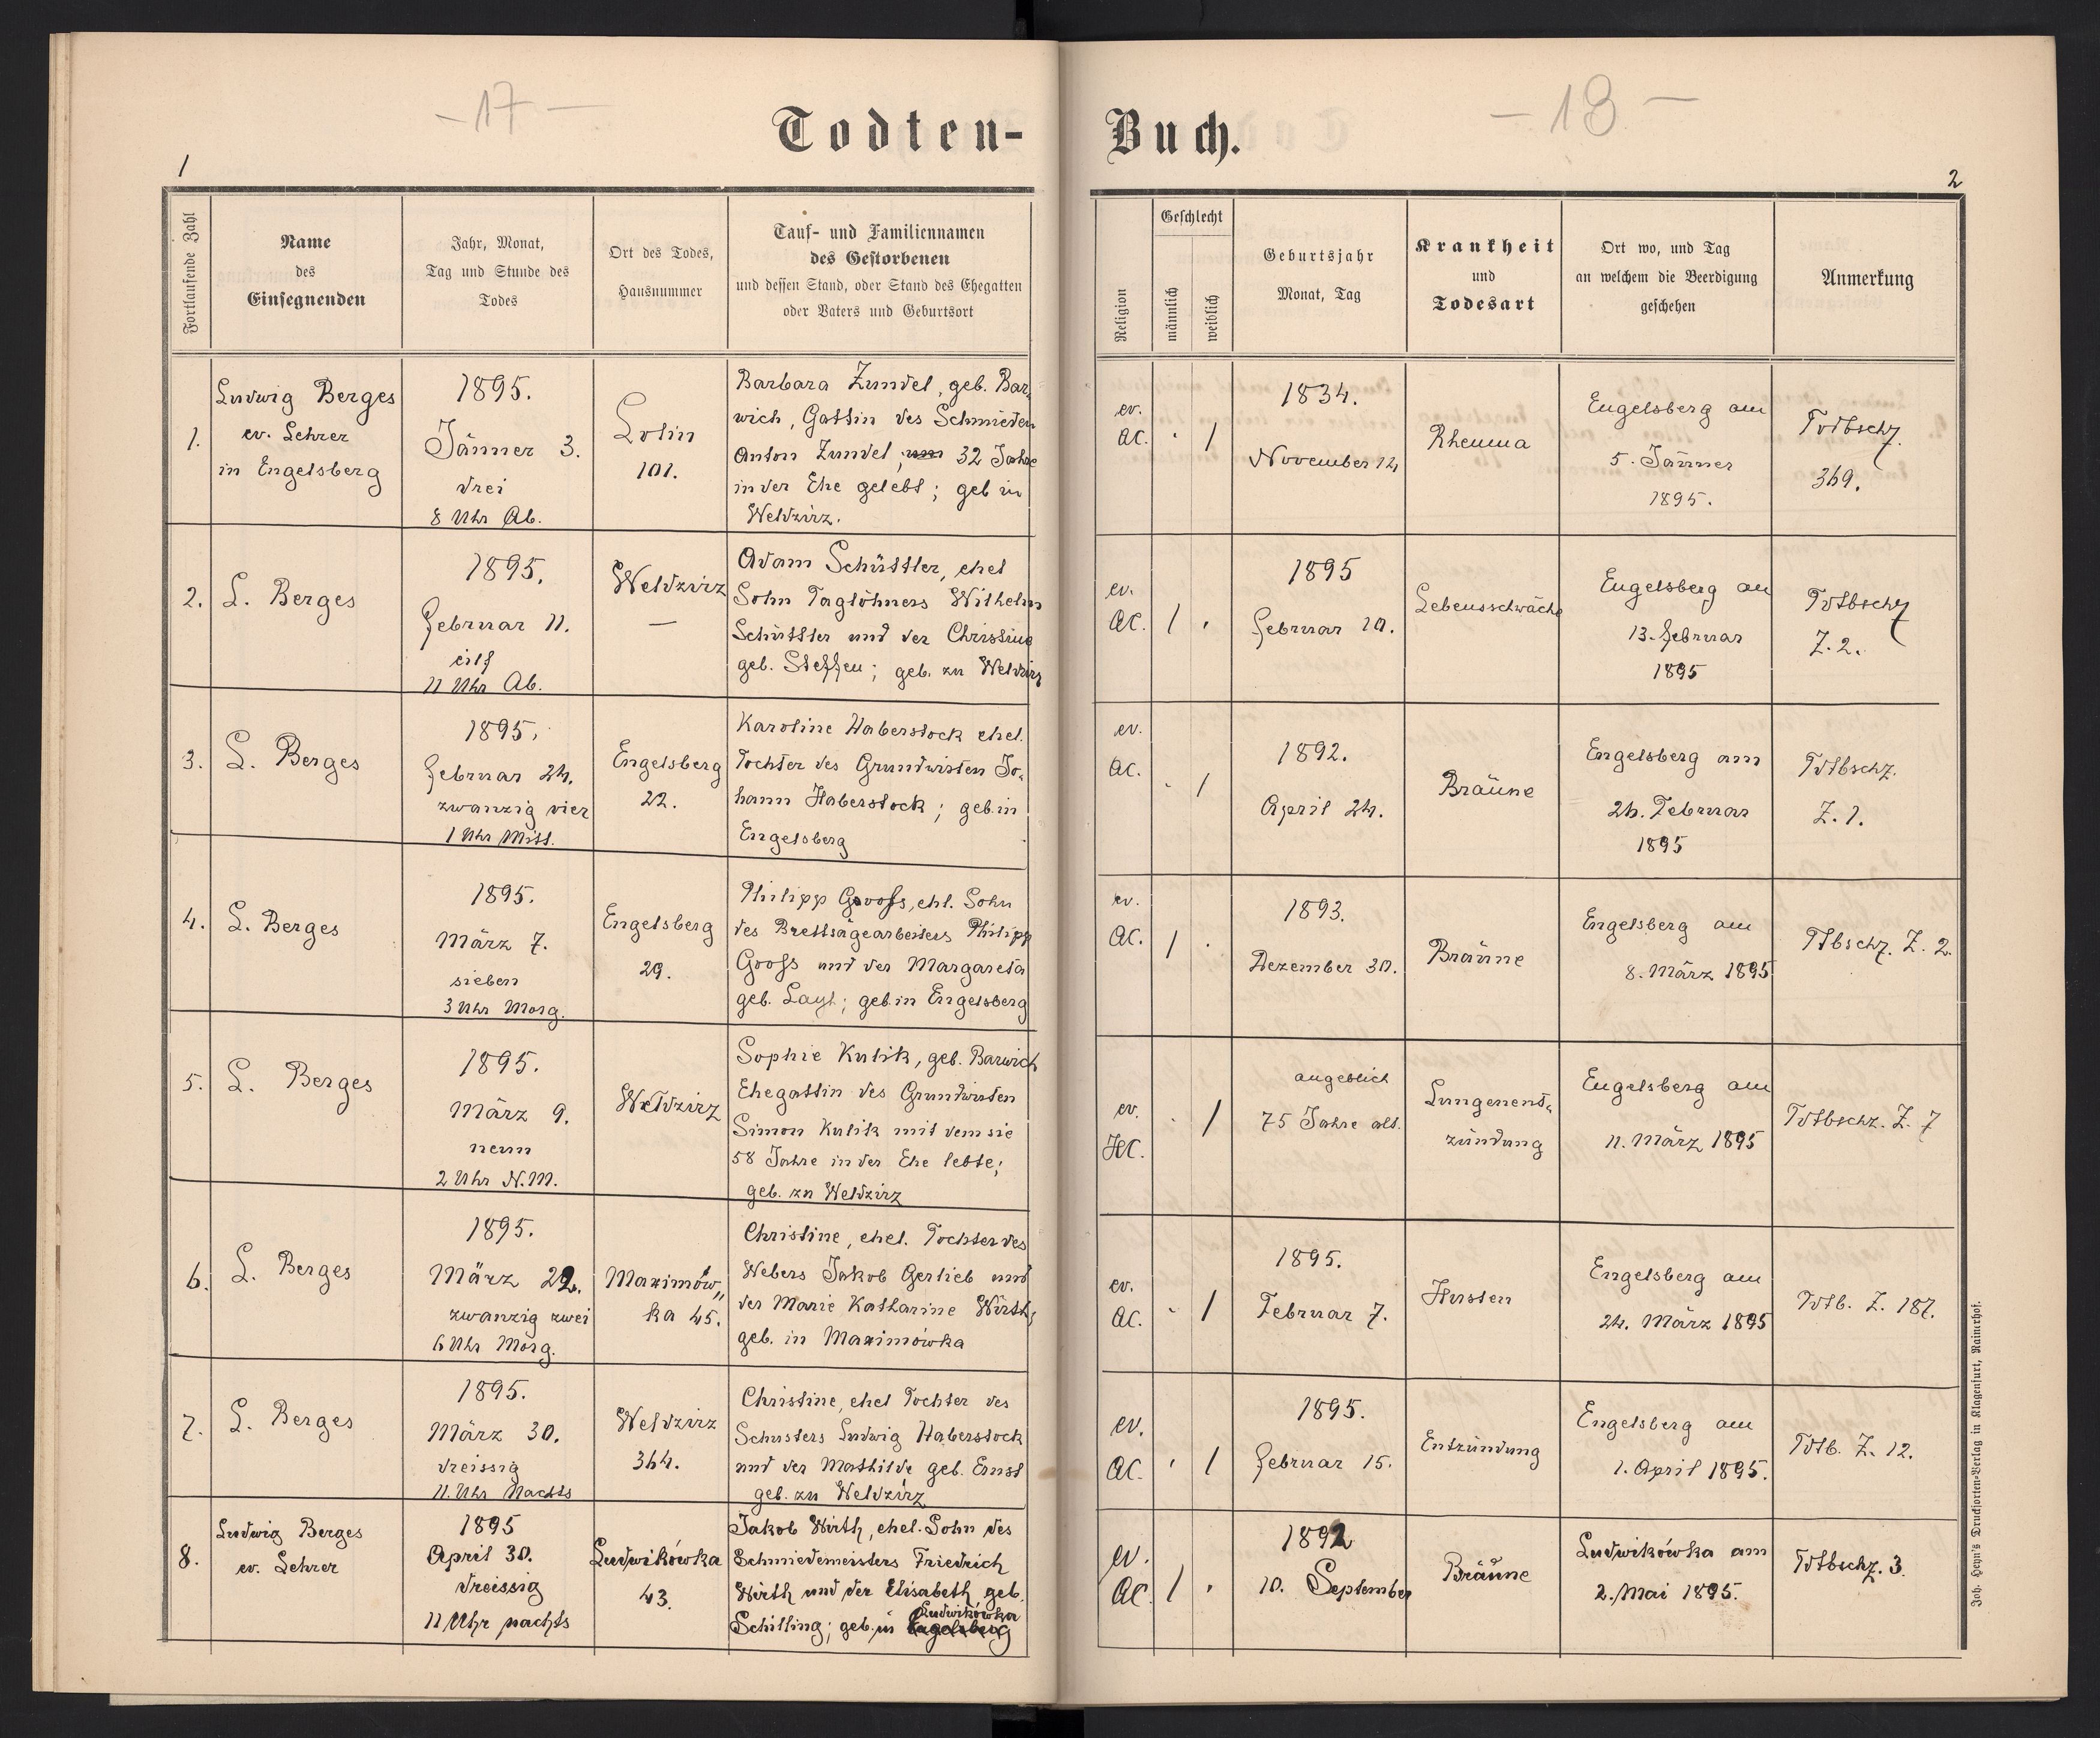 - 17 -
Todten-
1
Fortlaufende Zahl
Name
des
Einsegnenden
Jahr, Monat,
Tag und Stunde des
Todes
Ort des Todes,
Hausnummer
Tauf- und Familiennamen
des Gestorbenen
und dessen Stand, oder Stand des Ehegatten
oder Vaters und Geburtsort
1.
Ludwig Berges
ev. Lehrer
in Engelsberg
1895.
Jänner 3.
drei
8 Uhr Ab.
Lolin
101.
Barbara Zundel, geb. Bar-
wich, Gattin des Schmieden
Anton Zundel, 32 Jahre
in der Ehe gelebt; geb in
Weldzirz.
2.
L. Berges
1895.
Februar 11.
eilf
11 Uhr Ab.
Weldzirz
—
Adam Schüttler, ehel
Sohn Taglöhners Wilhelm
Schüttler und der Christine
geb. Steffen; geb. zu Weldzirz
3.
L. Berges
1895.
Februar 24.
zwanzig vier
1 Uhr Mitt.
Engelsberg
22.
Karoline Haberstock ehel.
Tochter des Grundwirten Jo-
hann Haberstock; geb. in
Engelsberg
4.
L. Berges
1895.
März 7.
sieben
3 Uhr Morg.
Engelsberg
29.
Philipp Grooß, ehl. Sohn
des Brettsägearbeiters Philipp
Gooß und der Margareta
geb. Layh; geb. in Engelsberg
5.
L. Berges
1895.
März 9.
neun
2 Uhr N.M.
Weldzirz
Sophie Kulik, geb. Barwich
Ehegattin des Grundwirten
Simon Kulik mit dem sie
58 Jahre in der Ehe lebte;
geb. zu Weldzirz
6.
L. Berges
1895.
März 22.
zwanzig zwei
6 Uhr Morg.
Maximów„
ka 45.
Christine, ehel. Tochter des
Webers Jakob Gerlieb und
der Marie Katharine Wirth;
geb. in Maximówka
7.
L. Berges
1895.
März 30.
dreissig
11. Uhr Nachts
Weldzirz
344.
Christine, ehel Tochter des
Schusters Ludwig Haberstock
und der Mathilde geb. Ernst
geb. zu Weldzirz
8.
Ludwig Berges
ev. Lehrer
1895
April 30.
dreissig
11 Uhr nachts
Ludwikówka
43.
Jakob Wirth, ehel. Sohn des
Schmiedemeisters Friedrich
Wirth und der Elisabeth, geb.
Ludwikówka
Schilling; geb. in Engelsberg
- 18 -
Buch.
2
Religion
Geschlecht
männlich
weiblich
Geburtsjahr
Monat, Tag
Krankheit
und
Todesart
Ort wo, und Tag
an welchem die Beerdigung
geschehen
Anmerkung
ev.
AC.
· /
1834.
November 14
Rheuma
Engelsberg am
5. Jänner
1895.
Todbschz.
369.
ev.
AC.
/ ·
1895
Februar 10.
Lebensschwäche
Engelsberg am
13. Februar
1895
Todbschz
Z. 2.
ev.
AC.
· /
1892.
April 24.
Bräune
Engelsberg am
24. Februar
1895
Todbschz.
Z. 1.
ev.
AC.
/ ·
1893.
Dezember 30.
Bräune
Engelsberg am
8. März 1895
Tdbschz. Z. 2.
ev.
HC.
· /
angeblich
75 Jahre alt.
Lungenent-
zündung
Engelsberg am
11. März 1895
Todbschz. Z. 7
ev.
AC.
· /
1895.
Februar 7.
Husten
Engelsberg am
24. März 1895
Todb. Z. 187.
ev.
AC.
· /
1895.
Februar 15.
Entzündung
Engelsberg am
1. April 1895.
Todb. Z. 12.
ev.
AC.
/ ·
1892
10. September
Bräune
Ludwikówka am
2. Mai 1895.
Todbschz. 3.
Joh. Heyn's Drucksorten-Verlag in Klagenfurt, Rainerhof.